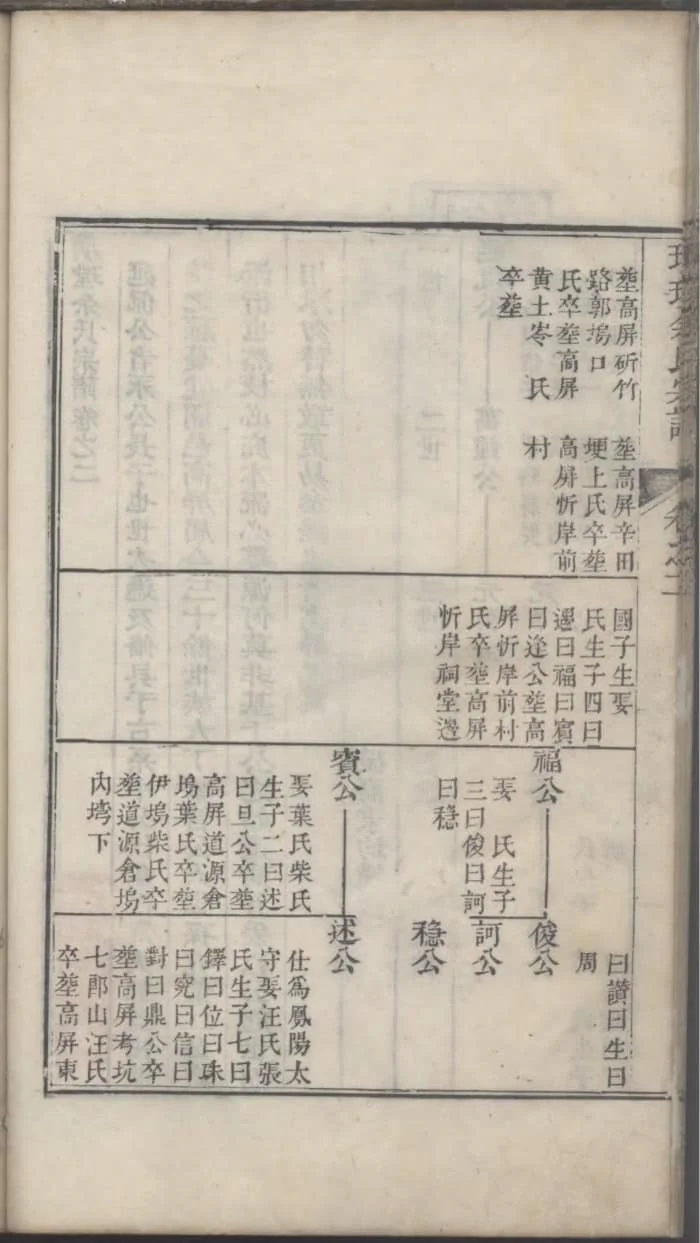 余氏宗譜
卷之二
塟高屏斫竹
路郭塢口
氏卒塟高屏
黄土岺 氏
卒塟
塟高屏辛田
埂上氏卒塟
高屏忻岸前
村
國子生娶
氏生子四曰
曰福曰賓
曰逢公塟高
屏忻岸前村
氏卒塟高屏
忻岸祠堂邊
福公
娶 氏生子
三曰俊曰訶
曰穏
賓公
娶葉氏柴氏
生子二曰述
曰旦公卒塟
高屏道源倉
塢葉氏卒塟
伊塢柴氏卒
塟道源倉塢
內塆下
曰讃曰生曰
周
俊公
訶公
穏公
述公
仕爲鳳陽太
守娶汪氏張
氏生子七曰
鐸曰位曰珠
曰究曰信曰
對曰鼎公卒
塟高屏考坑
七郎山汪氏
卒塟高屏東